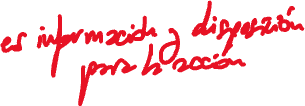 es información y disposición
para la acción